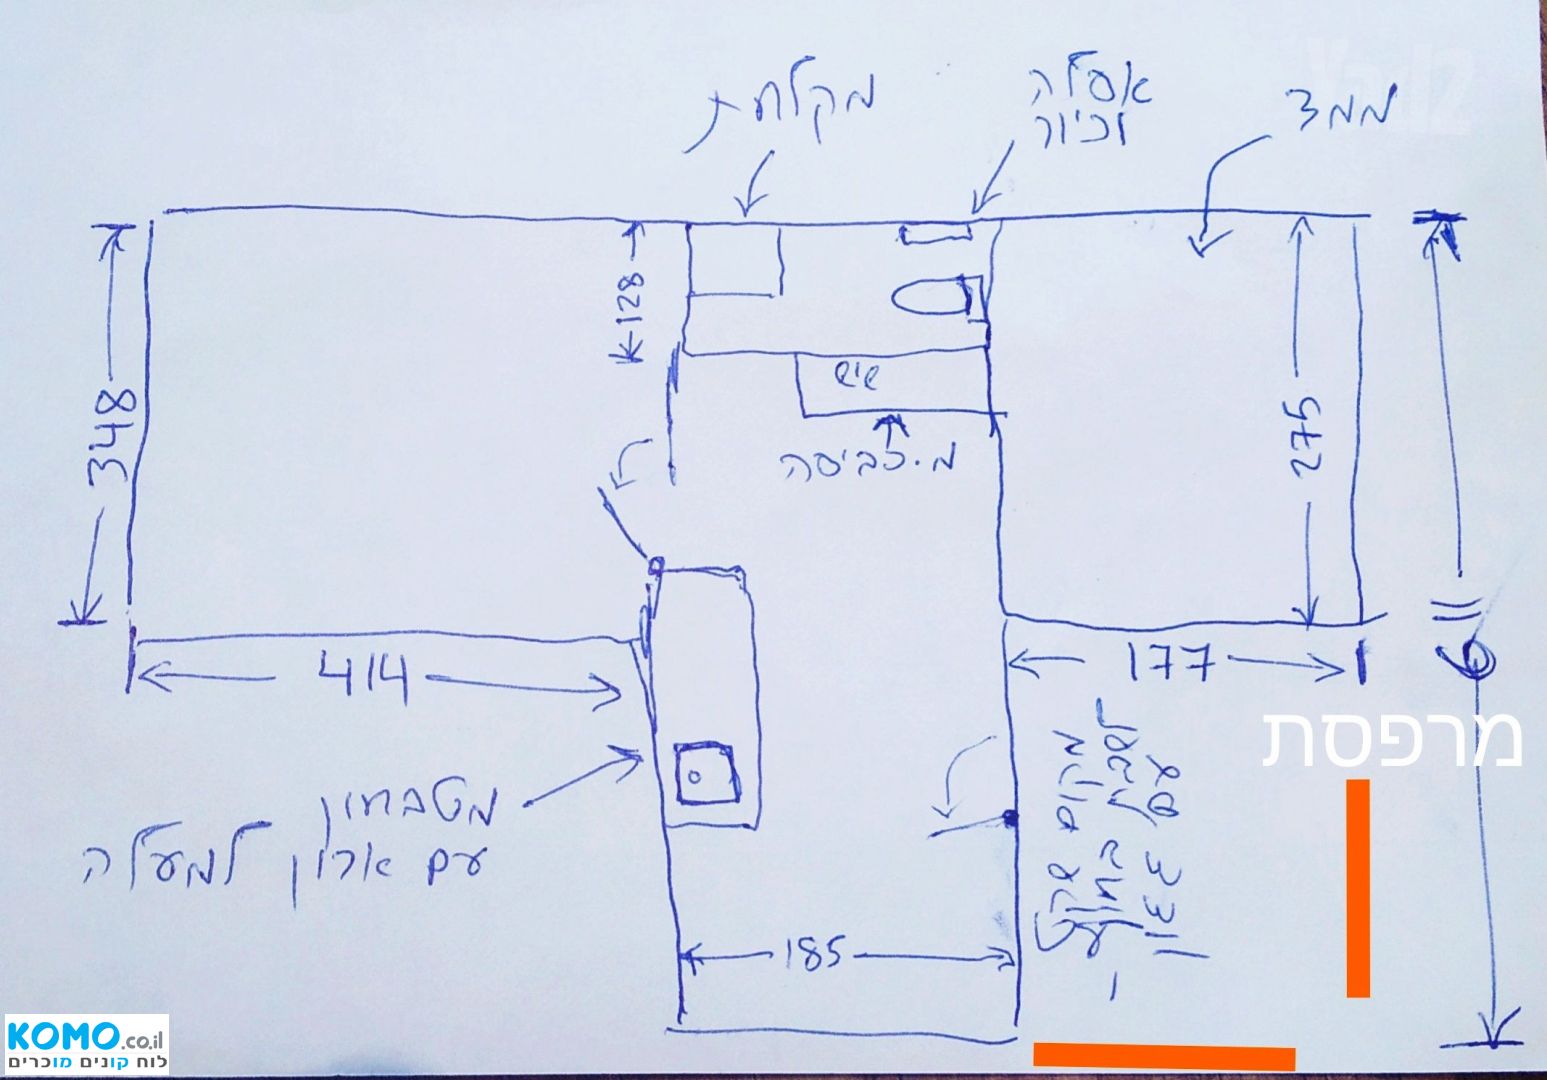 מקלחת
אסלה
וכיור
ממד
128
348
שיש
מ.כביסה
275
414
177
611
מרפסת
מטבחון
עם ארון למעלה
מקום שקט
לשבת בחוץ
עם גגון
185
KOMO.co.il
לוח קונים מוכרים